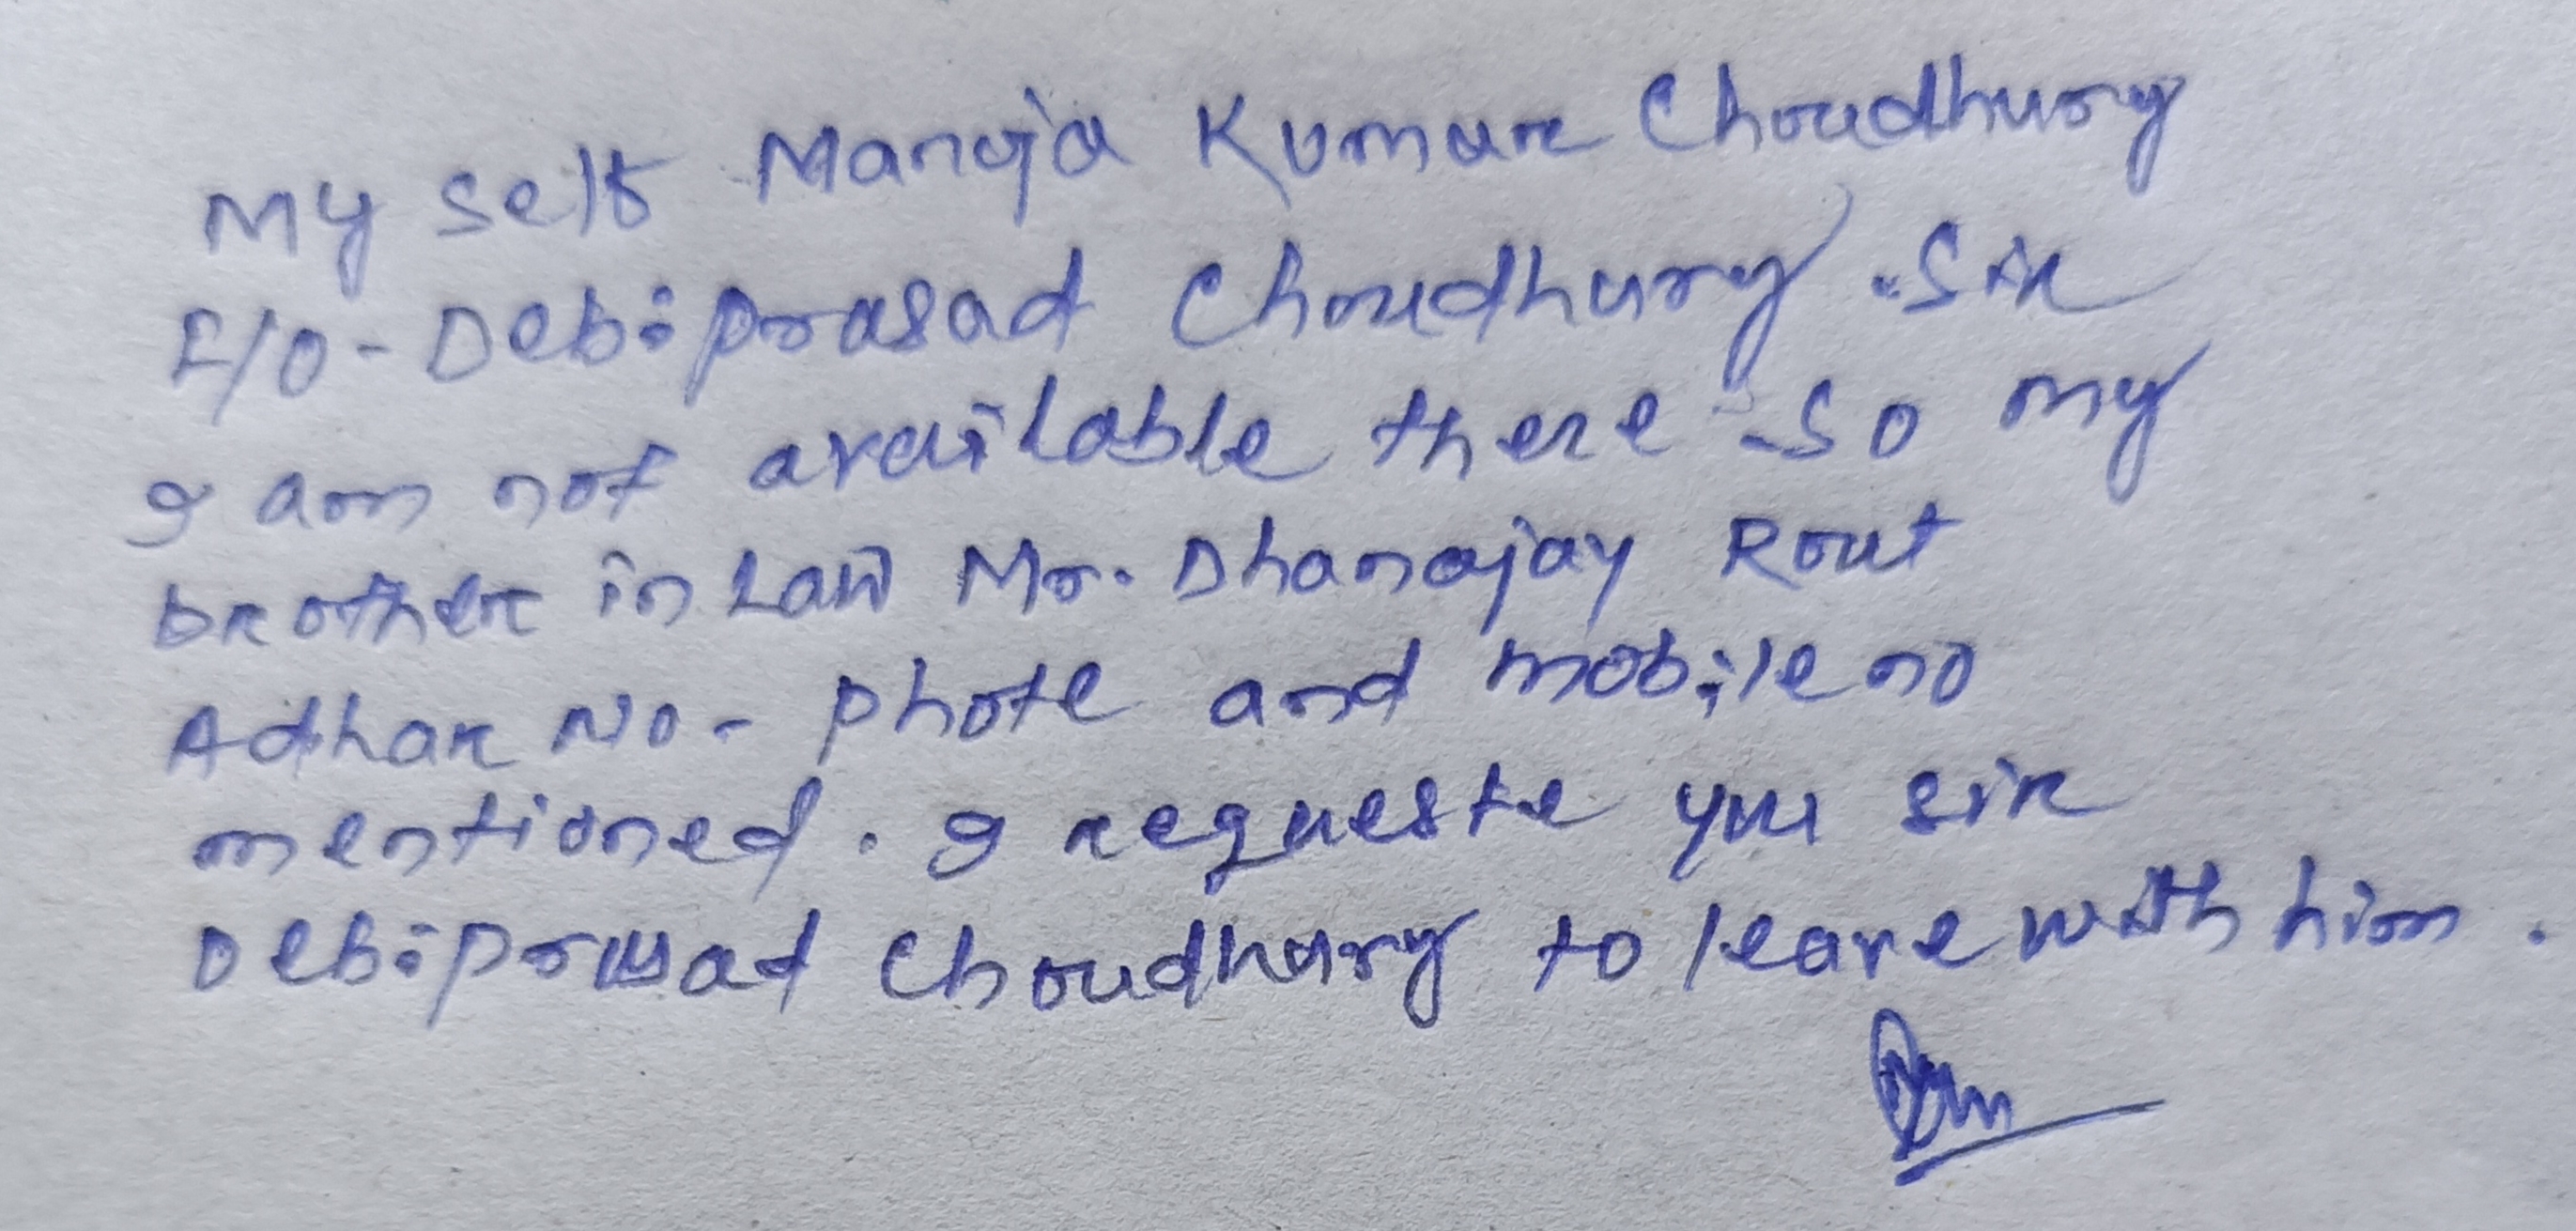 My self Manoja Kumar Choudhury
F/O - Debiprasad Choudhury. Sir
I am not available there so my
brother in Law Mr. Dhanajay Rout
Adhar No - phote and mobile no
mentioned. I requeste you sir
Debiprasad Choudhury to leave with him.